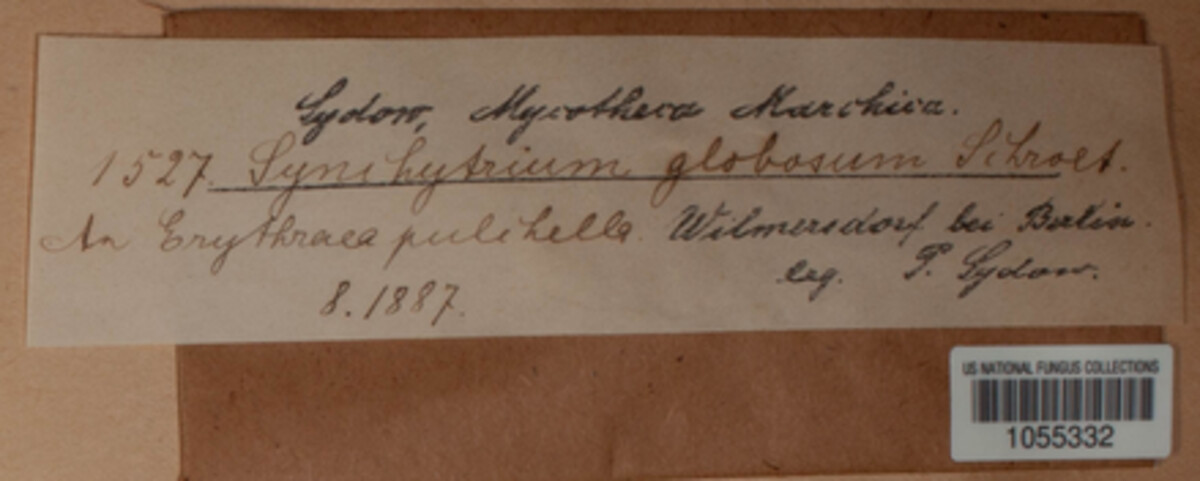 Sydow, Mycotheca Marchica.
1527. Synchytrium globosum Schroet.
An Erythraea pulchella. Wilmersdorf bei Berlin.
leg. P. Sydow.
8. 1887.
US NATIONAL FUNGUS COLLECTIONS
1055332